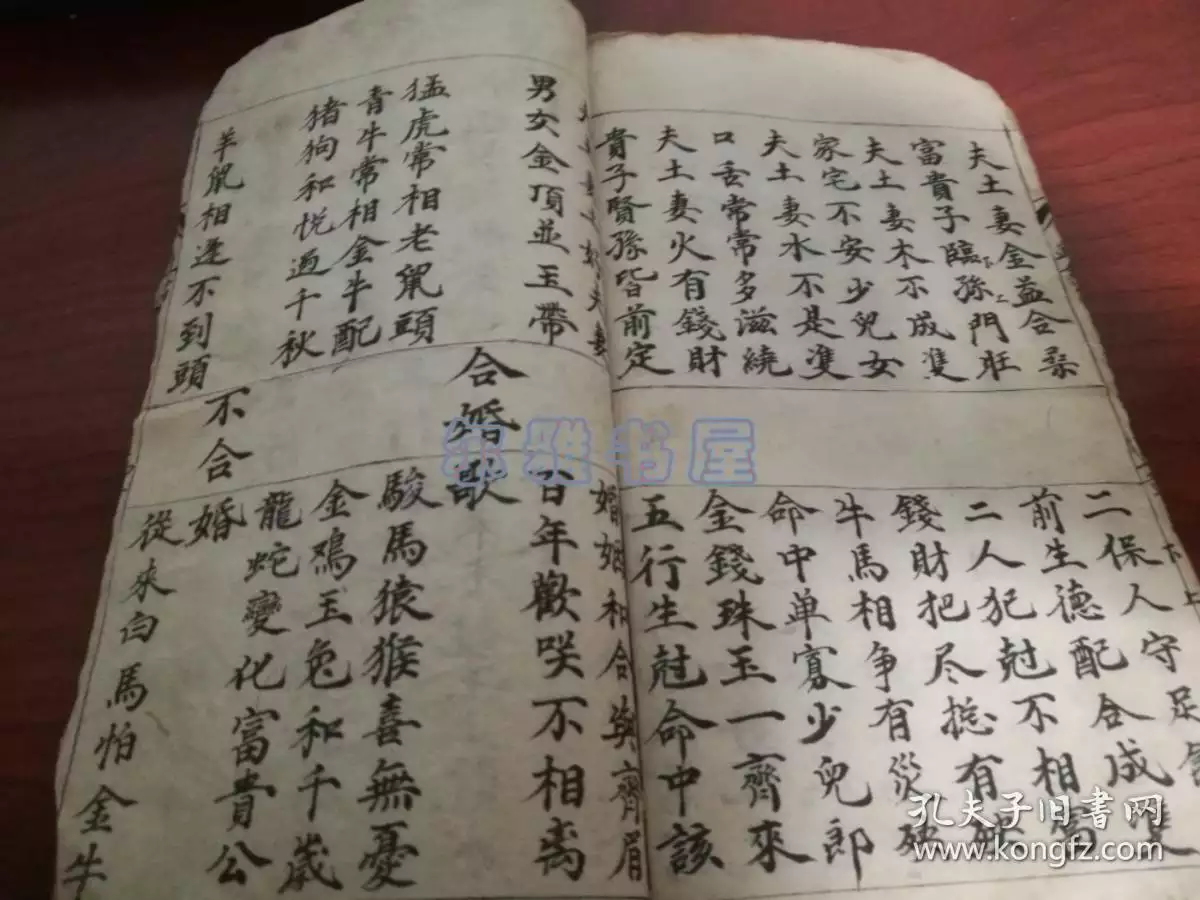 夫土妻金益合
富貴子臨孫門旺
夫土妻木不成隻
家宅不安少兒女
夫土妻水不是隻
口舌常常多滋繞
夫土妻火有錢財
貴子賢孫皆前定
二保人守
前生德配合成隻
二人犯尅不相
錢財把尽捴有
牛馬相争有災
命中单寡少兒郎
金錢珠玉一齊來
五行生尅命中該
婚姻和合與齊眉
男女金頂並玉帶
百年歡咲不相离
合婚歌
猛虎常相老鼠頭
駿馬猿猴喜無憂
青牛常相金牛配
金鷄玉兔和千歲
猪狗和悦過千秋
龍蛇變化富貴公
不合婚
羊鼠相逢不到頭
從來白馬怕金牛
雅书屋
孔夫子旧書网
www.kongfz.com